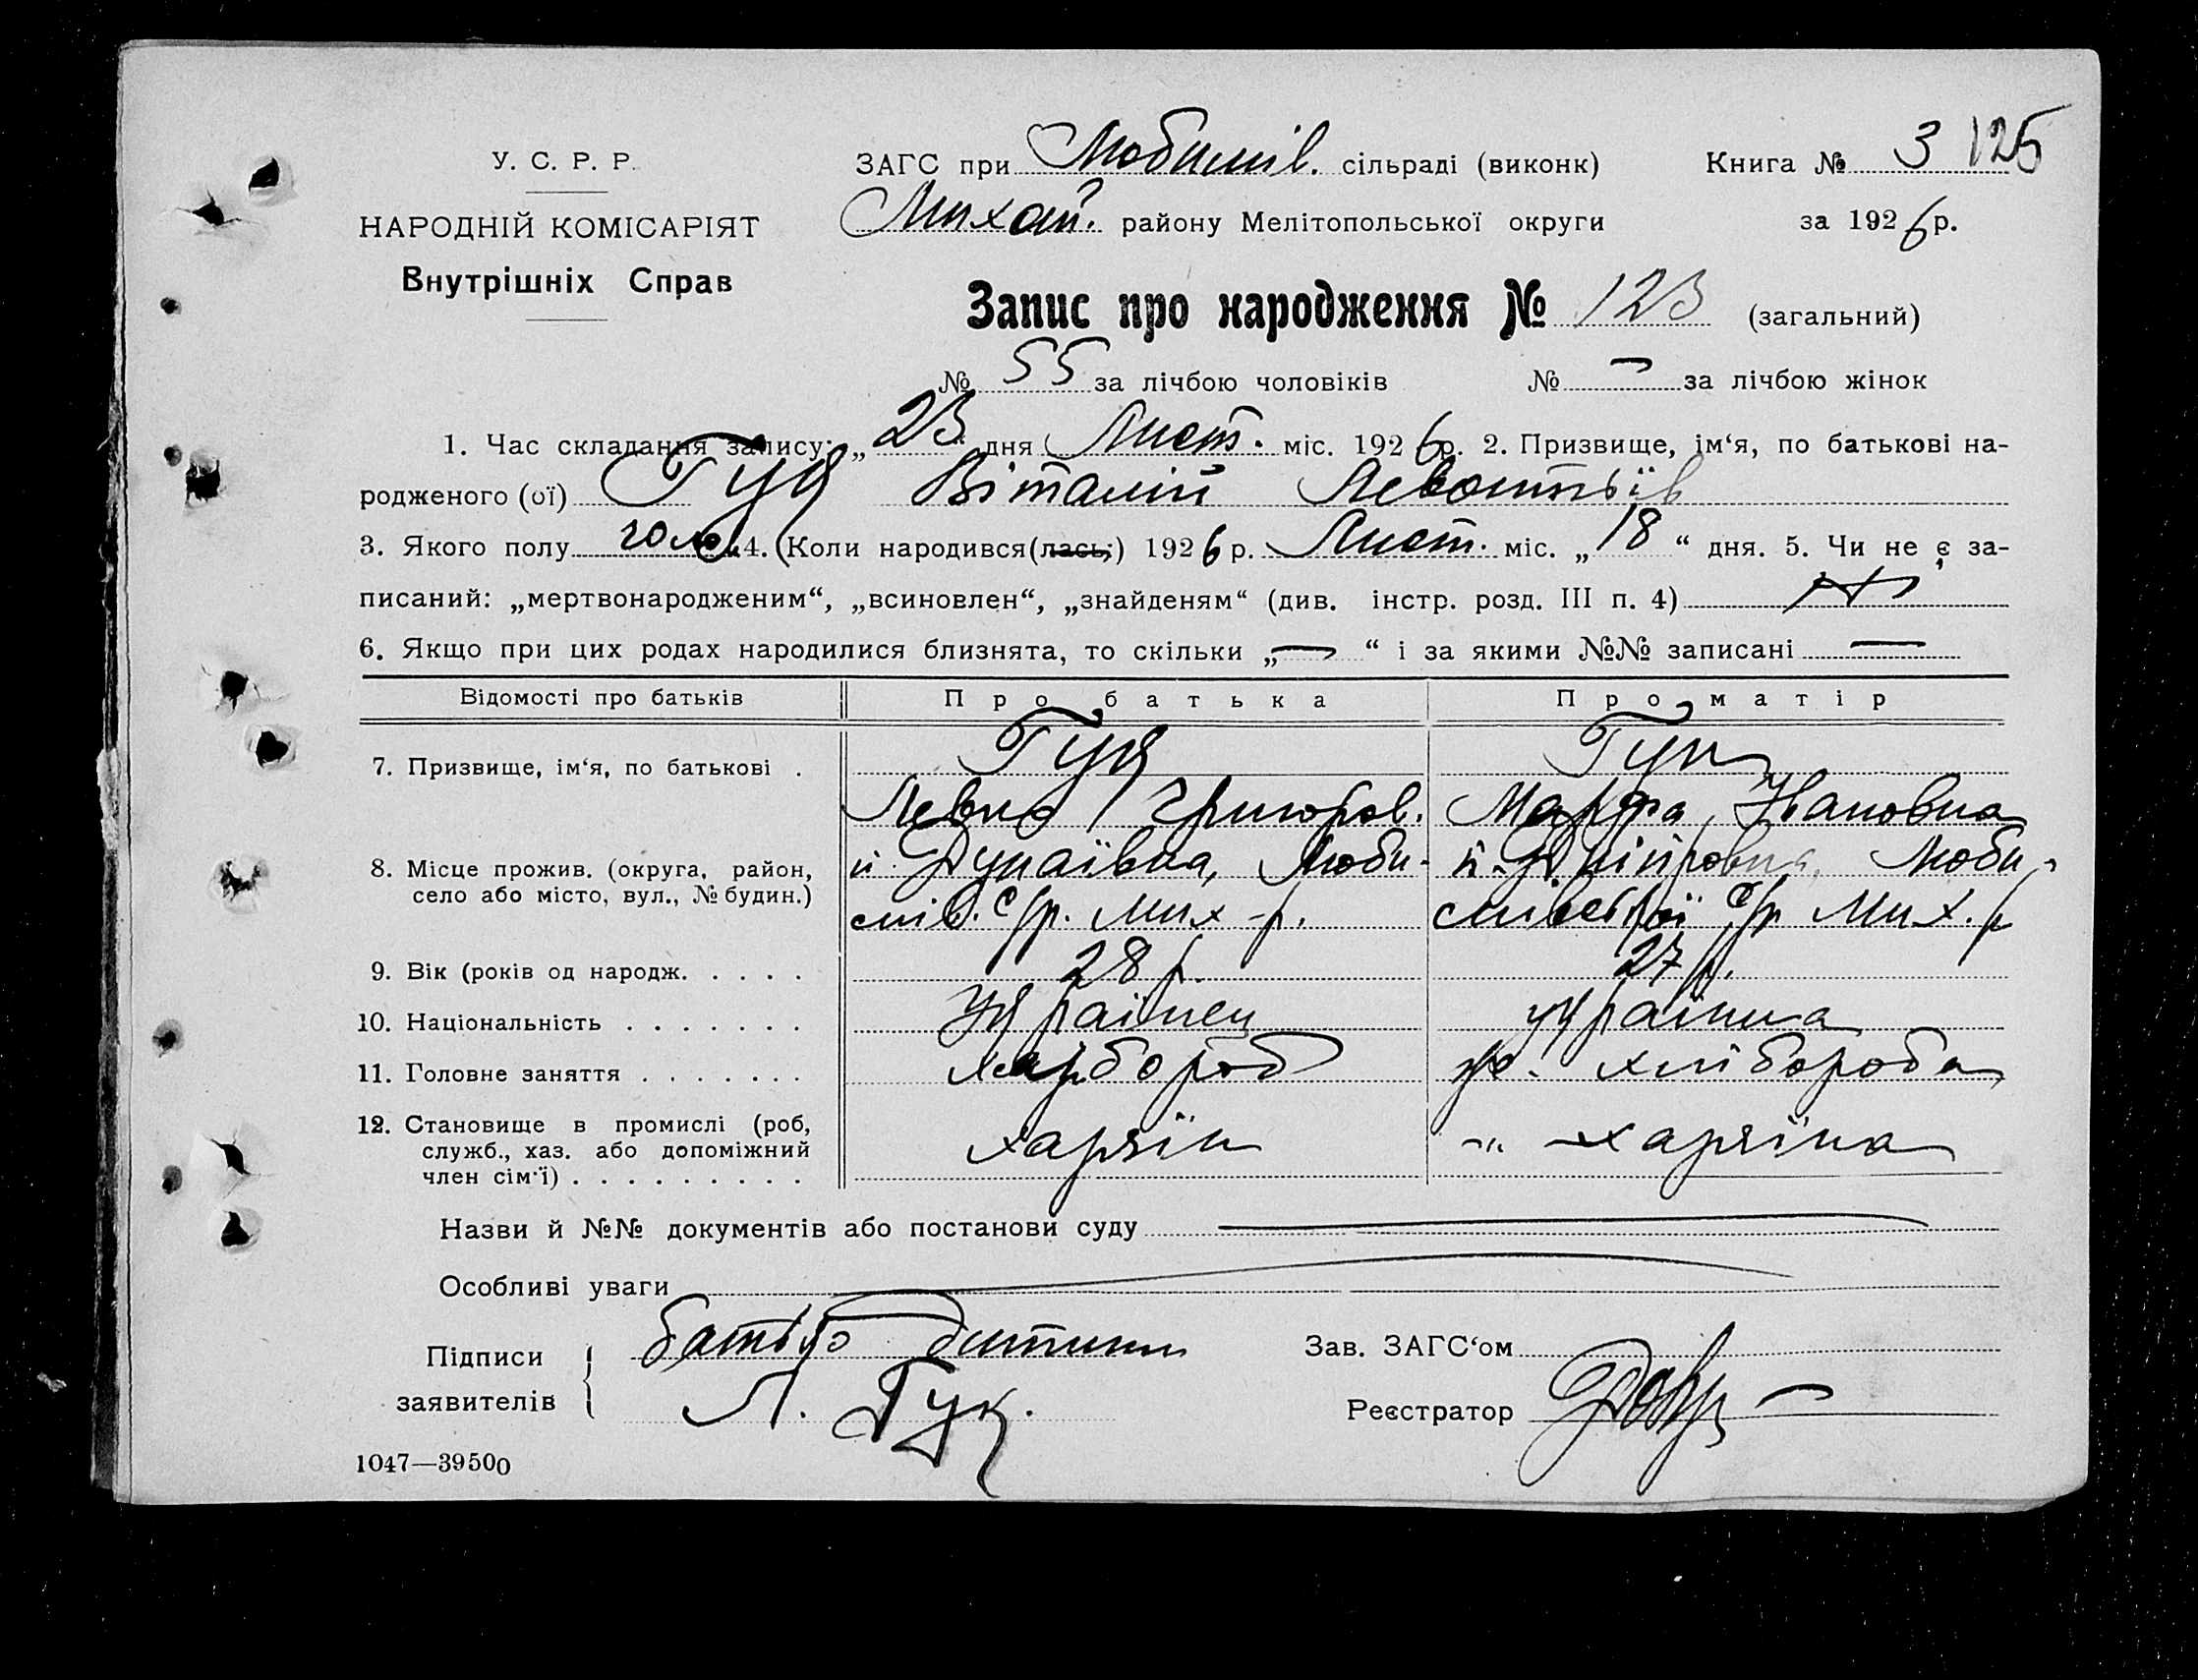 У. С. Р. Р. ЗАГС при Любимів. сільраді (виконк) Книга № 3 125
НАРОДНІЙ КОМІСАРІЯТ Михай. району Мелітопольської округи за 1926 р.
Внутрішніх Справ
Запис про народження № 123 (загальний)
№ 55 за лічбою чоловіків № — за лічбою жінок
1. Час складання запису: „23“ дня Лист. міс. 1926 р. 2. Призвище, ім‘я, по батькові на-
родженого (ої) Гук Віталій
3. Якого полу чол. 4. (Коли народився(лась;) 1926 р. Лист. міс. „18“ дня. 5. Чи не є за-
писаний: „мертвонародженим“, „всиновлен“, „знайденям“ (див. інстр. розд. III п. 4)
6. Якщо при цих родах народилися близнята, то скільки „—“ і за якими №№ записані —
Відомості про батьків Про батька Про матір
7. Призвище, ім‘я, по батькові . Гук Гук
Левко Григоров. Марфа Ивановна
8. Місце прожив. (округа, район, Люби- Люби-
село або місто, вул., № будин.) мів. с/р. Мих. р. мівської с/р Мих. р
9. Вік (років од народж. . . . . 28 р. 27 р.
10. Національність . . . . . . . Українец українка
11. Головне заняття . . . . . . . хлібороб хлібороба
12. Становище в промислі (роб, хазяїн хазяїна
служб., хаз. або допоміжний
член сім‘ї) . . . . . . . . .
Назви й №№ документів або постанови суду
Особливі уваги
Підписи батько дитини Зав. ЗАГС‘ом
заявителів Л. Гук. Реєстратор
1047—39500